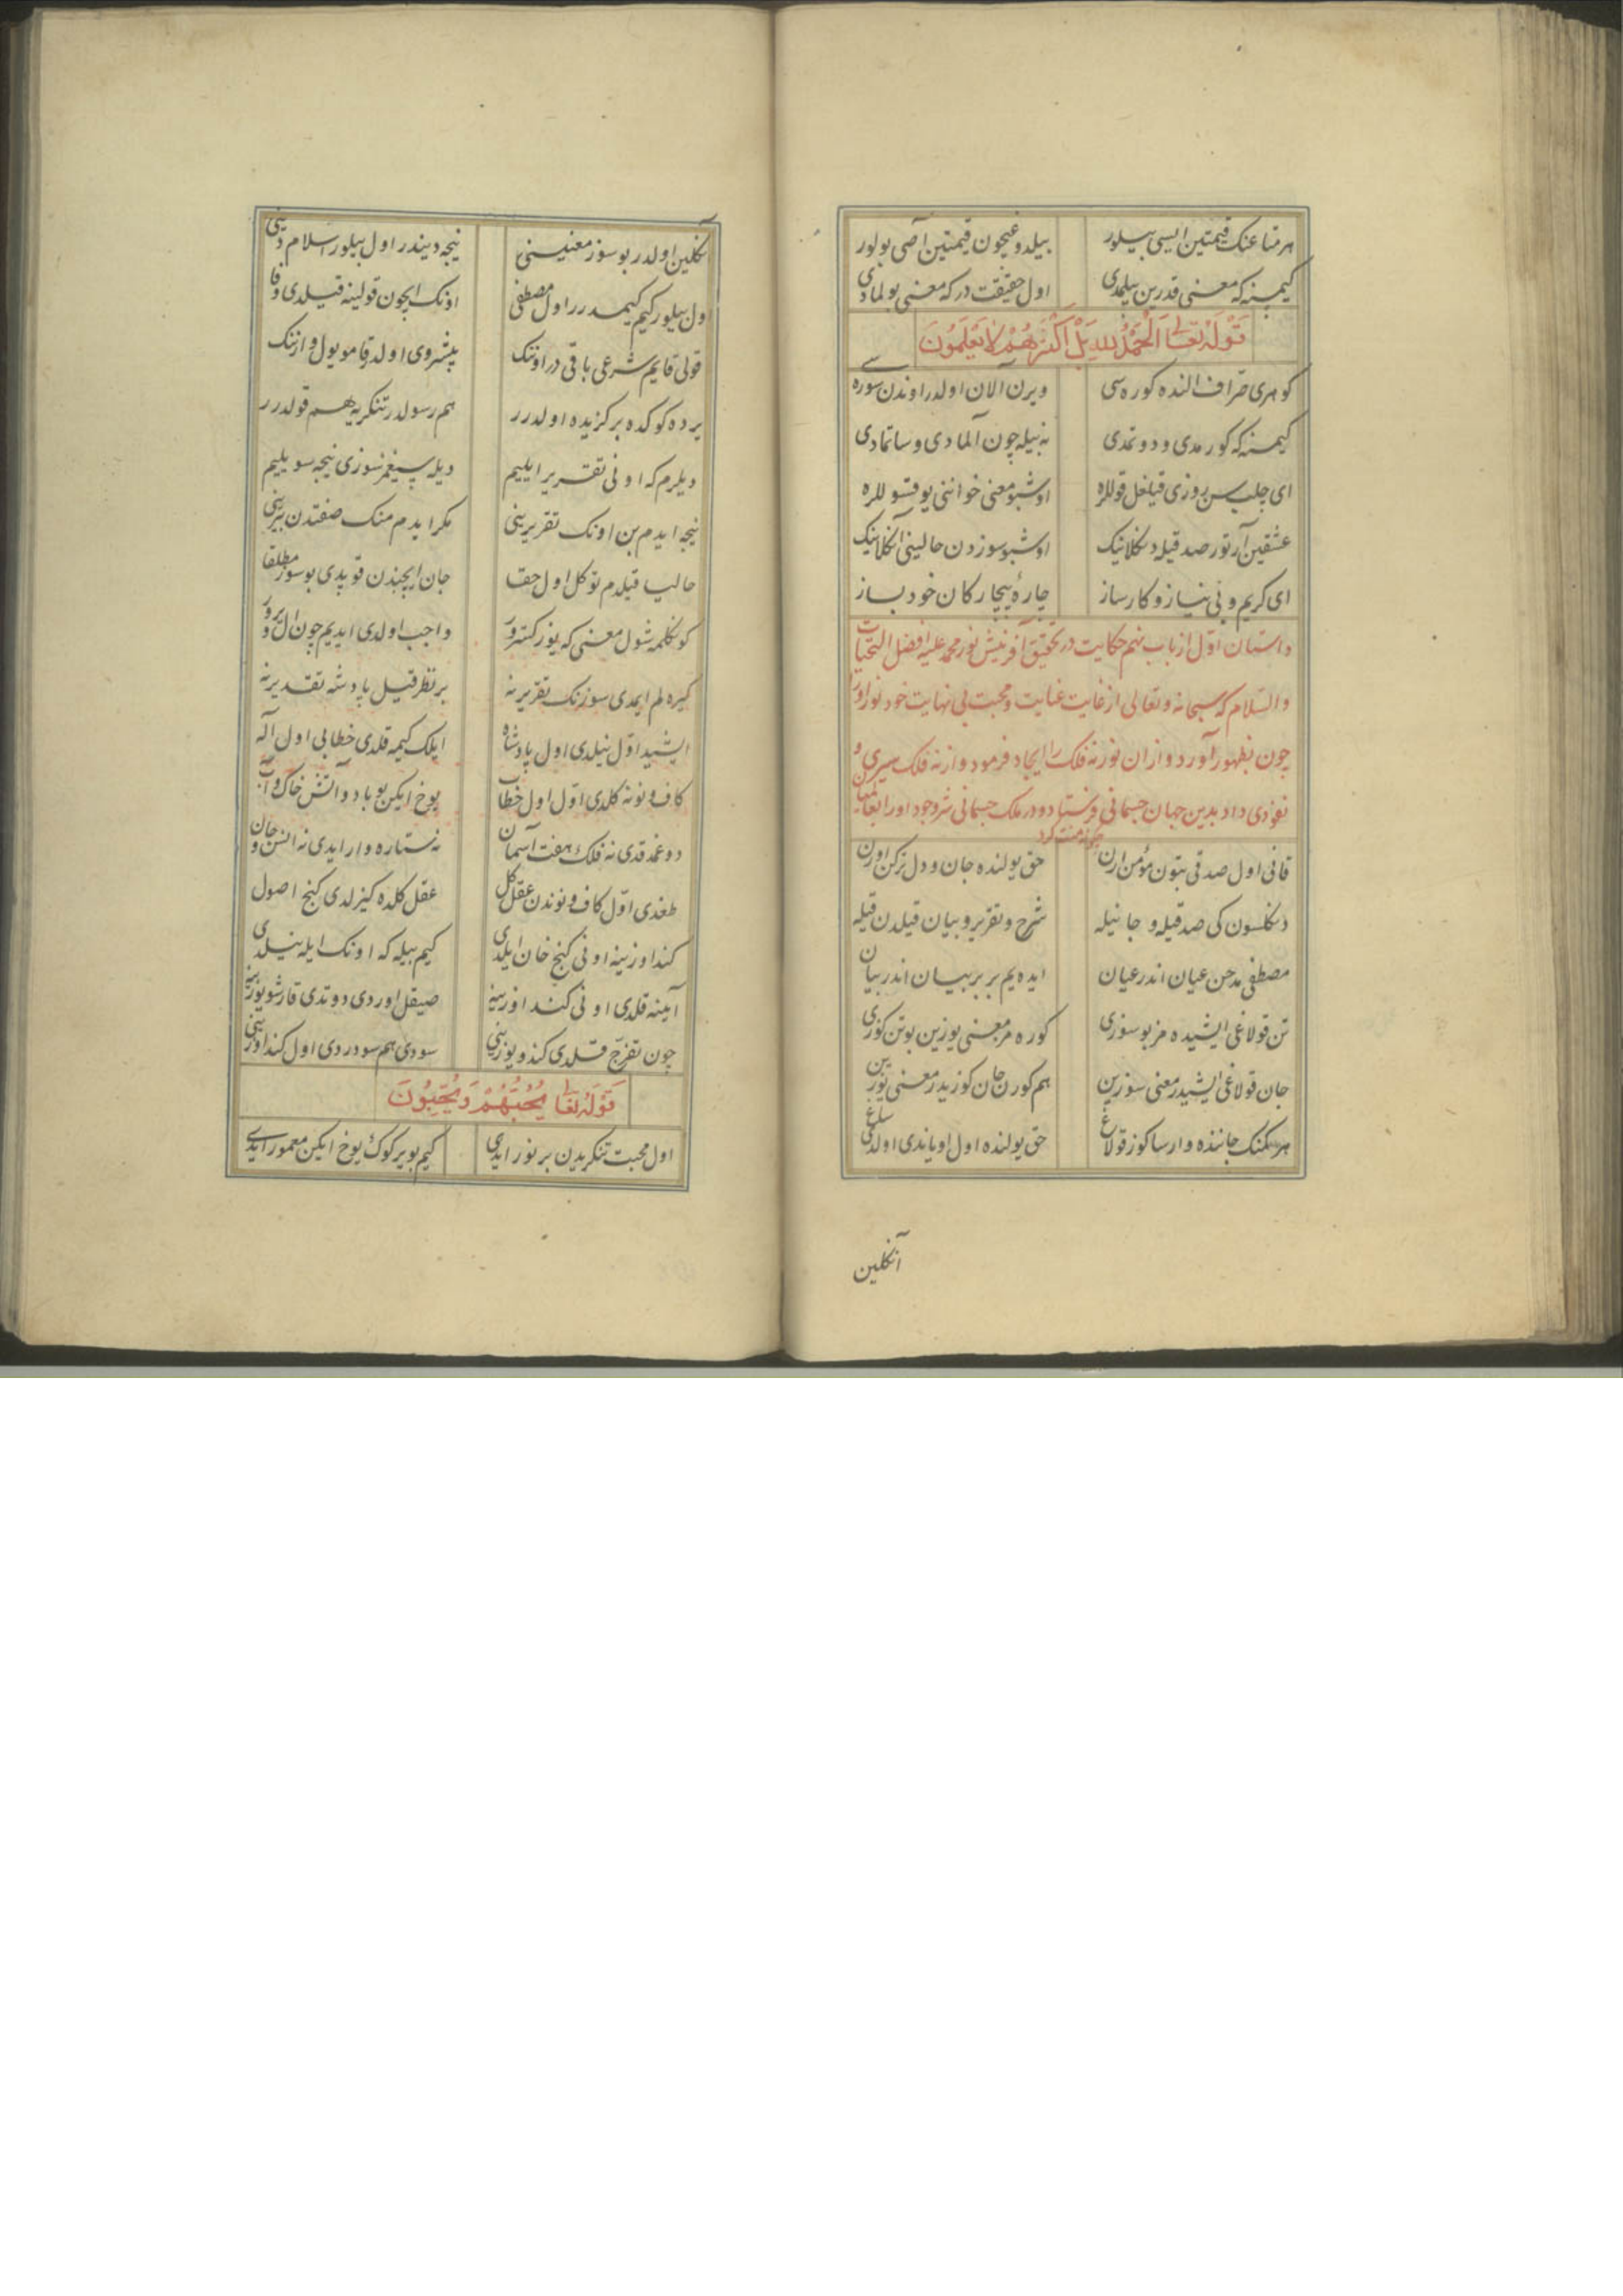 هر متاعنك قیمتین ایسی بیلور بیلدوغیچون قیمتین آصی بولور
كیمسنه كه معنی قدرین بیلمدی اول حقیقت در كه معنی بولمادی
قوله تعالی الحمد لله بل اكثرهم لا یعلمون
كوهری صراف النده كوره سی ویرن آلان اولدر اوندن سوره سی
كیمسنه كه كورمدی و دوتمدی نه بیله چون آلمادی و ساتمادی
ای چلب سن روزی قیلغل قوللره اوشبو معنی خوانی یوقسوللره
عشقین آرتور صدقیله دكلاینك اوشبو سوزدن حالینی آكلاینك
ای كریم و بی نیاز و كارساز چارهٔ بیچاركان خود بساز
داستان اول از باب نهم حكایت در تحقیق آفرینش نور محمد علیه افضل التحیات
والسلام كه سبحانه و تعالی از غایت عنایت و محبت بی نهایت خود نور اورا
چون بظهور آورد و از آن نور نه فلك را ایجاد فرمود و از نه فلك سیری و
نفوذی داد بدین جهان جسمانی فرستاد و در ملك جسمانی
چگونه منت كرد
قانی اول صدقی بتون مؤمن ارن حق یولنده جان و دل تركن اورن
دكلسون كی صدقیله و جانیله شرح و تقریر و بیان قیلدن قیله
مصطفی مدحن عیان اندر عیان ایده یم بر بر بیان اندر بیان
تن قولاغی ایشیده مز بو سوزی كوره مز معنی یوزین بو تن كوزی
جان قولاغی ایشیدر معنی سوزین هم كورن جان كوزیدر معنی یوزین
هر كمنك جاننده وارسا كوز قولاغ حق یولنده اول اویاندی اولدی ساغ
آنكلین
آنكلین اولدر بو سوز معنیسنی نیجه دیندر اول بیلور اسلام دینی
اول بیلور كیم كیمدرر اول مصطفی اونك ایچون قولینه قیلدی وفا
قولی قایم شرعی باقی در اونك پیشروی اولدر قامو یول وارنك
یرده كوكده بركزیده اولدرر هم رسولدر تنكریه هم قولدرر
دیلرم كه اونی تقریر ایلییم دیله پیغمبر سوزی نیجه سویلییم
نیجه ایدم بن اونك تقریرینی مكر ایدم منك صفتدن بیرینی
حالیا قیلدم توكل اول حقا جان ایچیندن قوپدی بو سوز مطلقا
كونكلمه شول معنی كه یوز كسترور واجب اولدی ایدیم چون ال ویرور
كیره لم ایمدی سوزنك تقریرنه بر نظر قیل پادشه تقدیرنه
ایشید اول نیلدی اول پادشاه ایلك كیمه قلدی خطابی اول آله
كاف و نونه كلدی اول اول خطاب یوخ ایكن بو باد و آتش خاك و آب
دوغمدقدی نه فلك هفت آسمان نه ستاره وار ایدی نه انس و جان
طغدی اول كاف و نوندن عقل كل عقل كلده كیزلدی كنج اصول
كنداوزینه اونی كنج خان ایلدی كیم بیله كه اونك ایله نیلدی
آینه قلدی اونی كنداوزینه صیقل اوردی دوتدی قارشو یوزینه
چون تفرج قلدی كندو یوزینی سودی هم سودردی اول كنداوزینی
قوله تعالی یحبهم و یحبون
اول محبت تنكریدن بر نور ایدی كیم بو یر كوك یوخ ایكن معمور ایدی